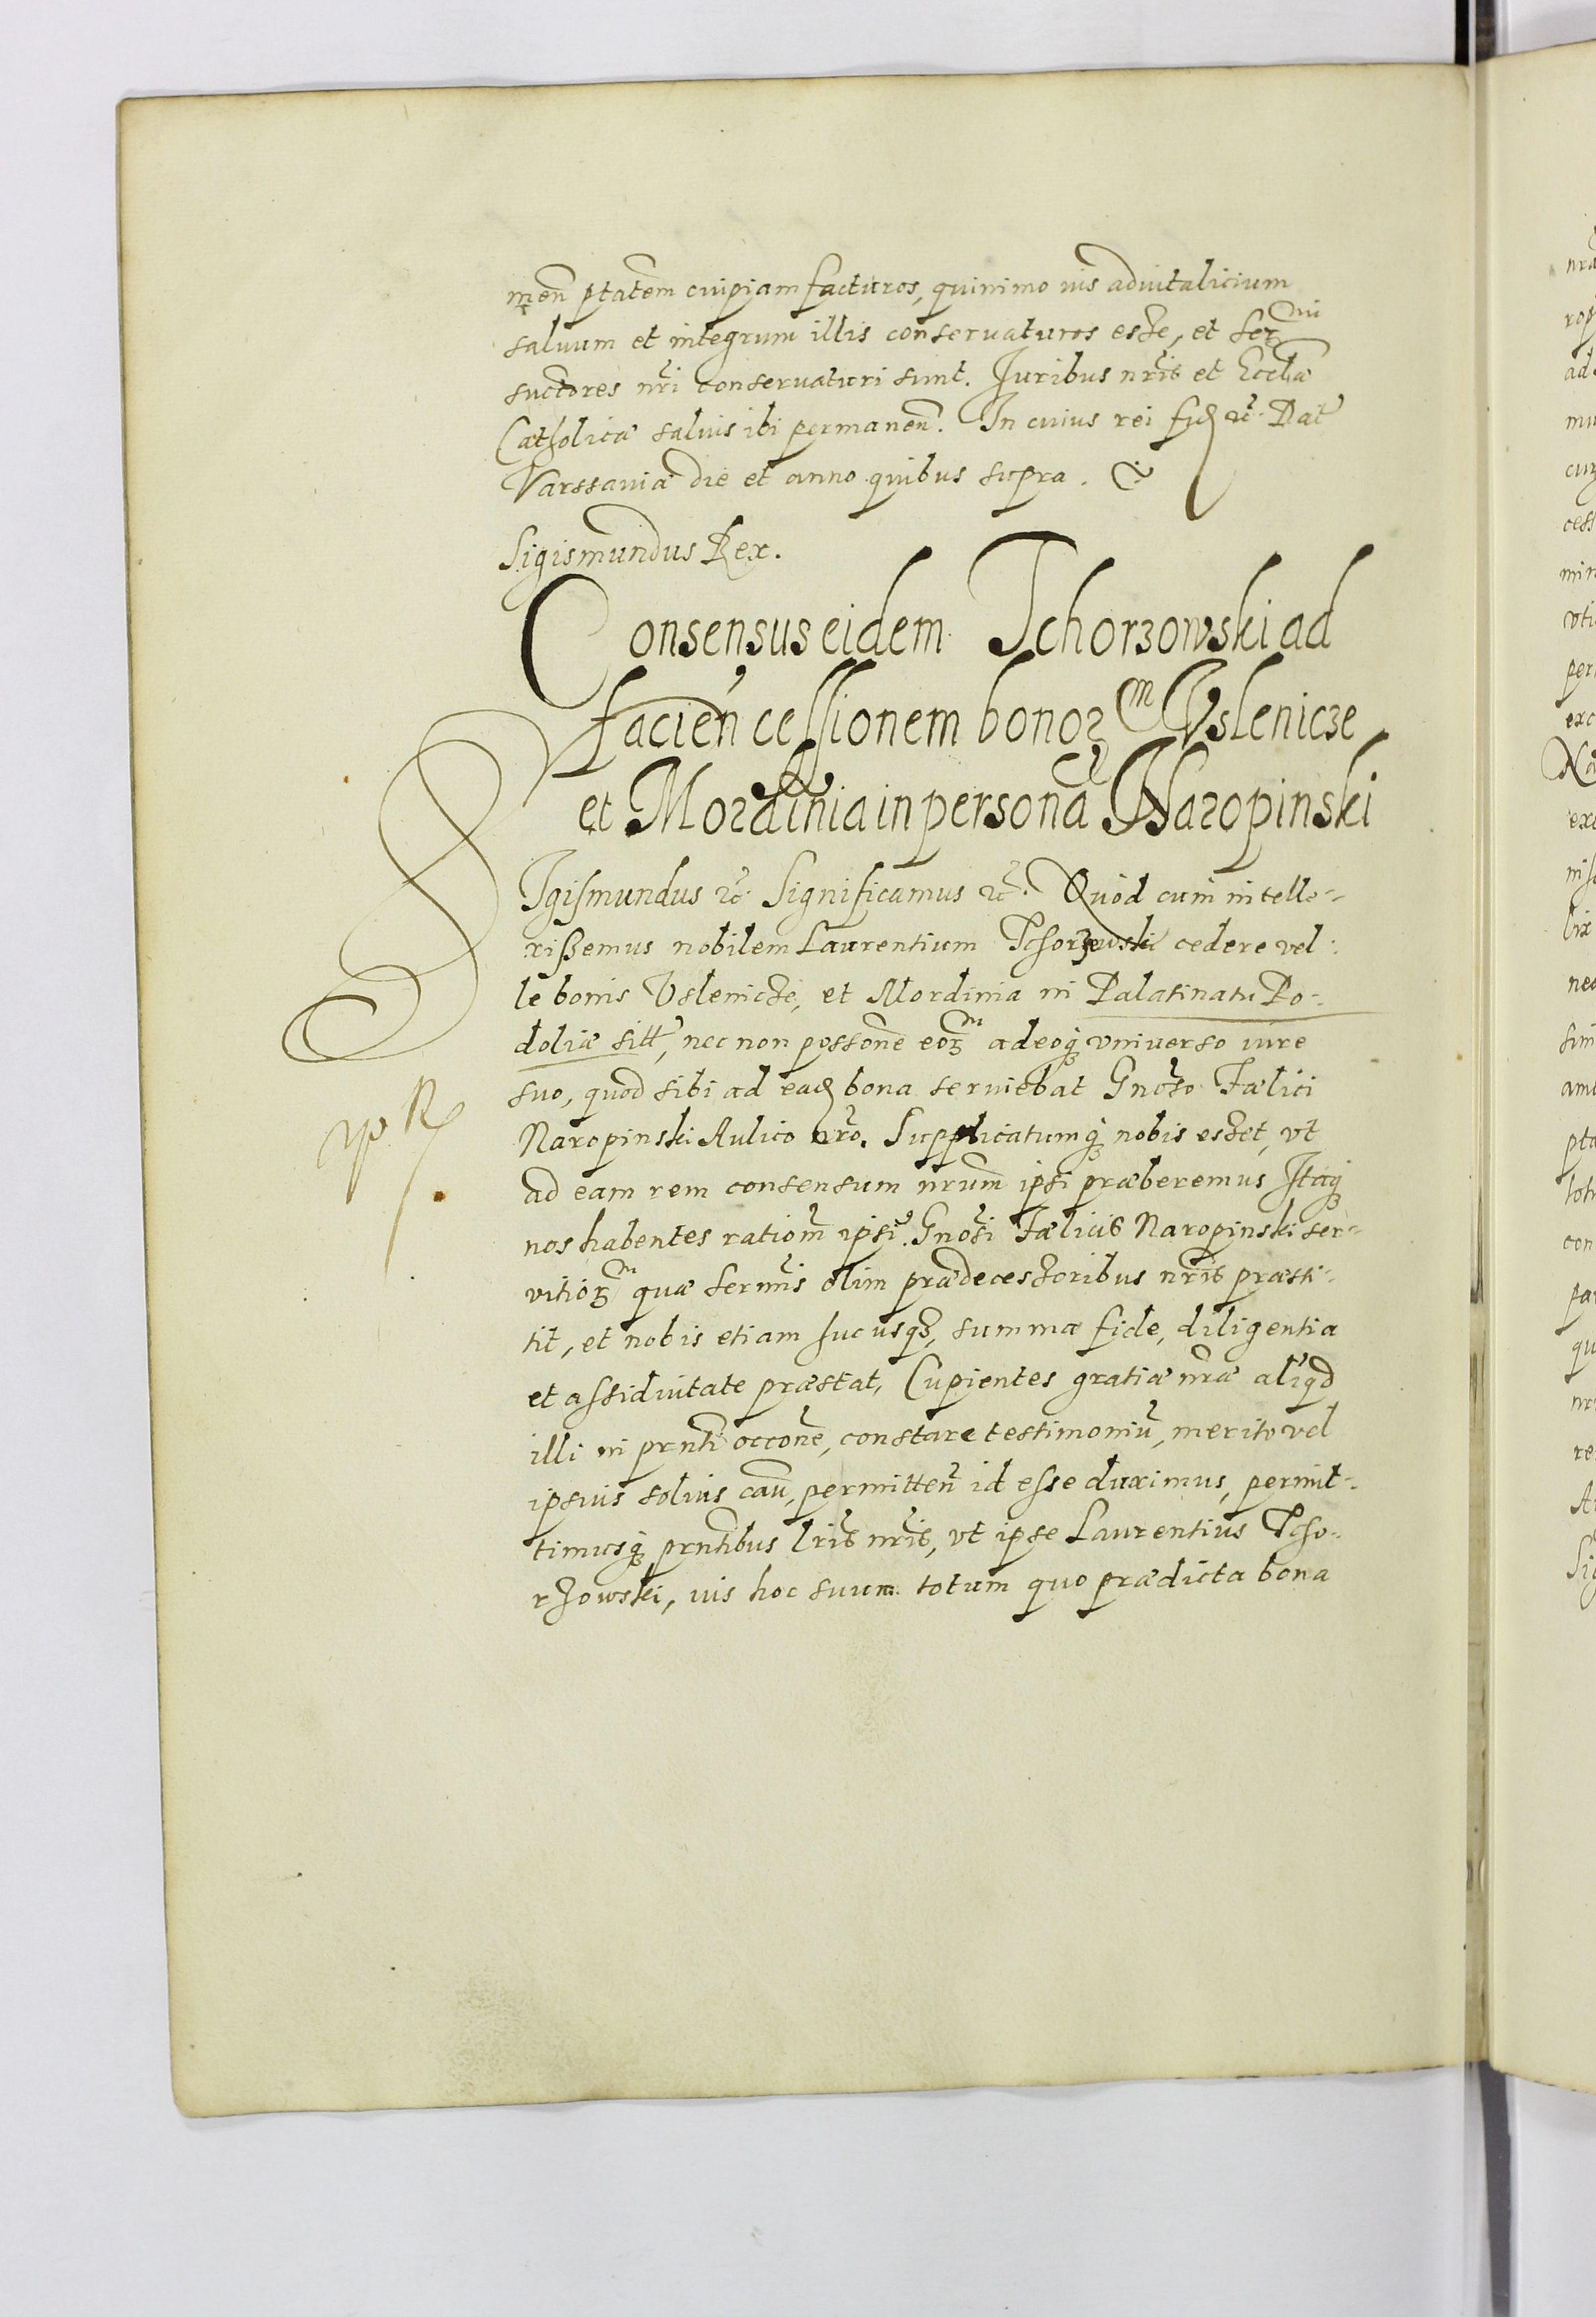 men ptatem cuipiam facturos, quinimo ius aduitalicium
saluum et integrum illis conseruaturos esse, et ser mi
suctores nri conseruaturi sunt. Juribus nris et Eccliæ
Catholicæ saluis ibi permanen. In cuius rei fid etc. Dat
Varssauiæ die et anno quibus supra.
Sigismundus Rex.
Consensus eidem Tchorzowski ad
facien cessionem bonorum Vslenicze
et Mordinia in persona Naropinski
SIgismundus etc. Significamus etc. Quod cum intelle-
xissemus nobilem Laurentium Tchorzewski cedere vel-
le bonis Vslenicze, et Mordinia in Palatinatu Po-
doliæ sitt, nec non possone eorum adeoq vniuerso iure
suo, quod sibi ad ead bona seruiebat Gnoso Fælici
Naropinski Aulico nro. Supplicatumq nobis esset, vt
ad eam rem consensum nrum ipsi præberemus Itaq
nos habentes rationm ipsi Gnosi Fælicis Naropinski ser-
vitiorum quæ sermis olim prædecessoribus nris præsti-
tit, et nobis etiam hucusq, summa fide, diligentia
et assiduitate præstat, Cupientes gratiæ nræ aliqd
illi in prnti occone, constare testimoniu, merito vel
ipsius solius cau, permitten id esse duximus, permit-
timusq prntibus lris nris, vt ipse Laurentius Tcho-
rzowski, ius hoc suum totum quo prædicta bona